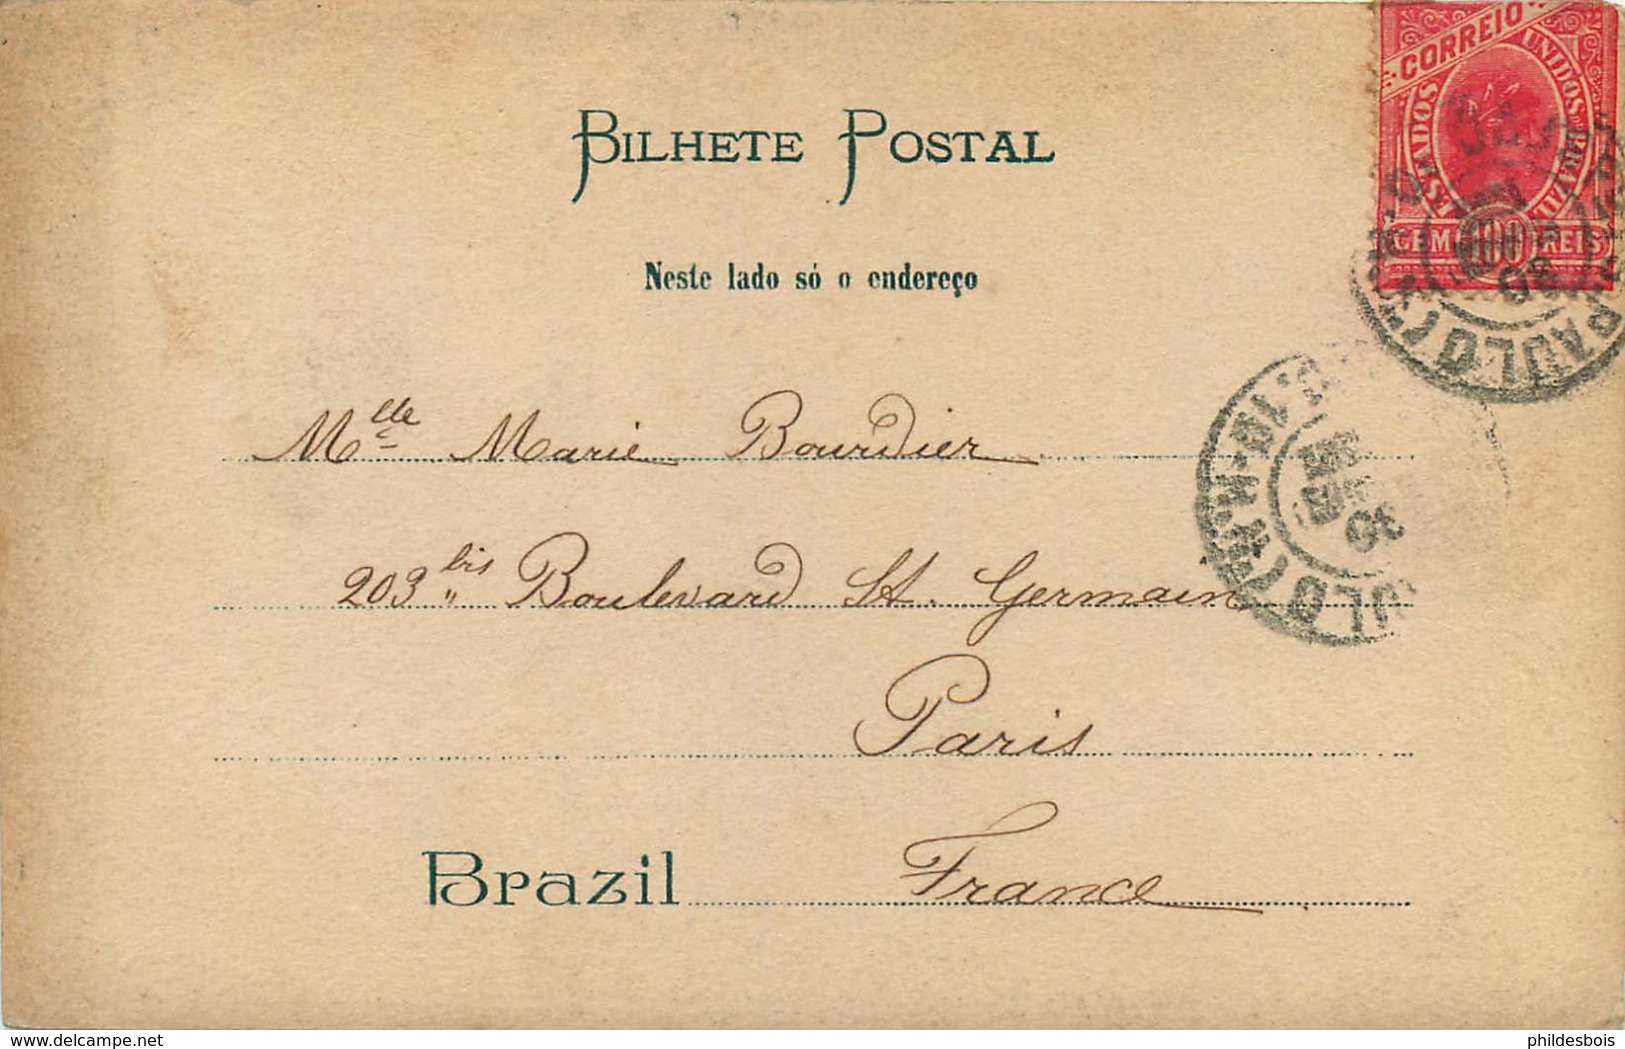 CORREIO
ESTADOS UNIDOS DO BRAZIL
CEM 100 REIS
BILHETE POSTAL
Neste lado só o endereço
Mlle Marie Bourdier
203 bis Boulevard St. Germain
Paris
Brazil France
PAULO
delcampe.net
phildesbois